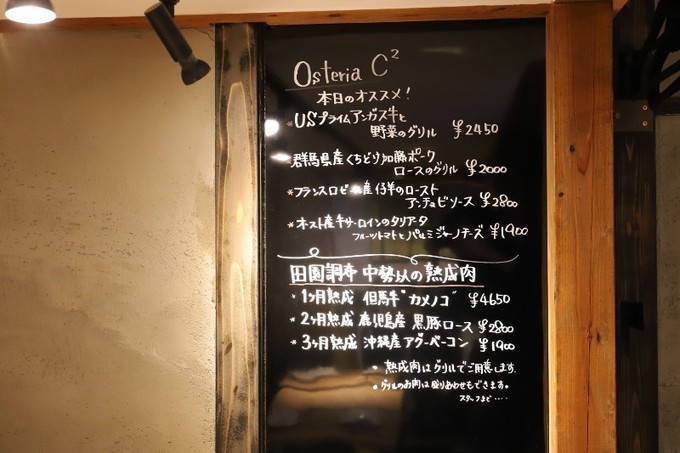 Osteria C²
本日のオススメ!
*USプライムアンガス牛と
野菜のグリル ¥2450
*群馬県産くちどり加藤ポーク
ロースのグリル ¥2000
*フランスロゼール産仔羊のロースト
アンチョビソース ¥2800
産牛サーロインのタリアータ
フルーツトマトとパルミジャーノチーズ ¥1900
田園調布 中勢以の熟成肉
・1ヶ月熟成 但馬牛"カメノコ" ¥4650
・2ヶ月熟成 鹿児島産 黒豚ロース ¥2800
・3ヶ月熟成 沖縄産アグーベーコン ¥1900
・熟成肉はグリルでご用意します.
・グリルのお肉は盛りあわせもできます。
スタッフまで‥‥